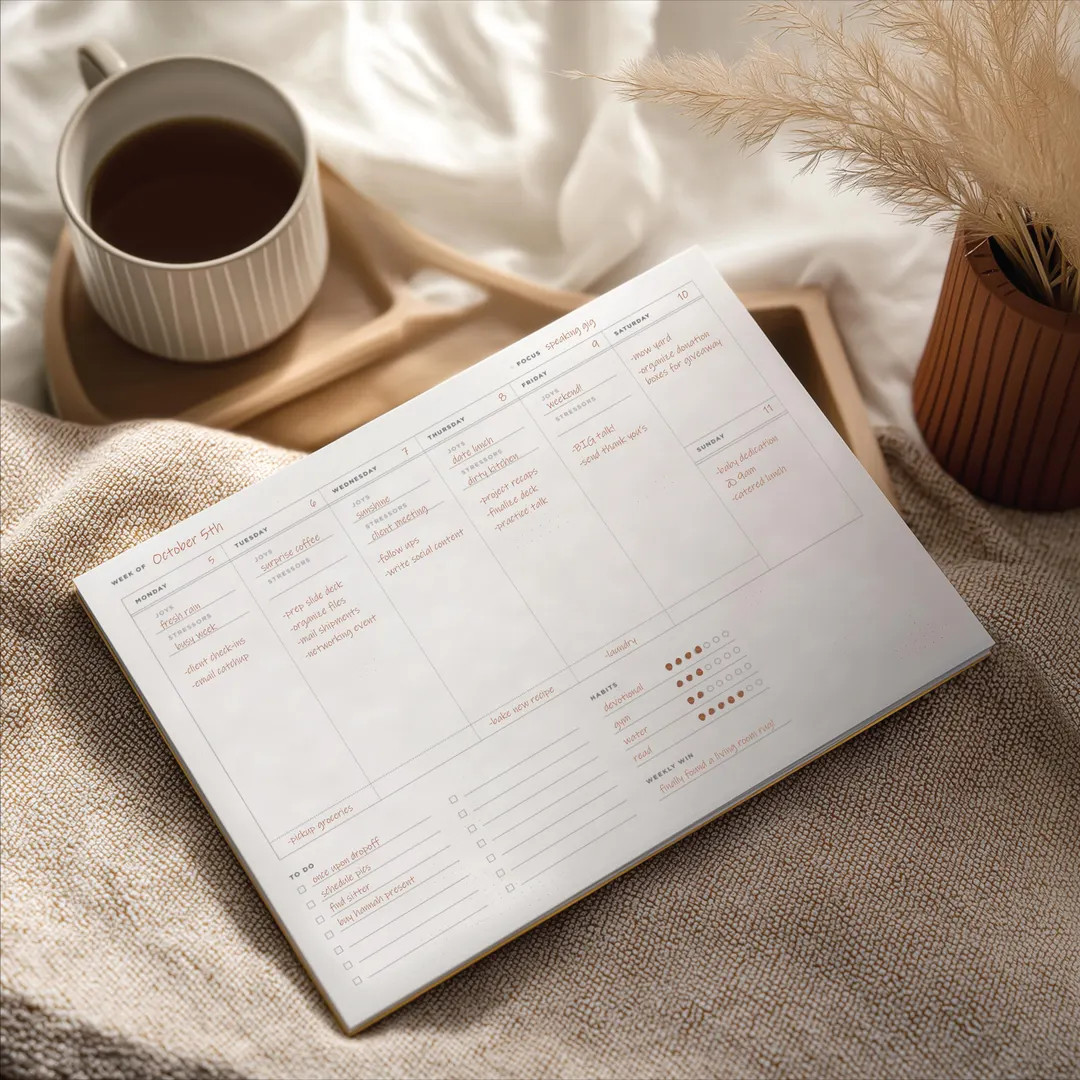 WEEK OF October 5th
FOCUS speaking gig
MONDAY 5
JOYS
fresh rain
STRESSORS
busy week
-client check-ins
-email catchup
-pickup groceries
TUESDAY 6
JOYS
surprise coffee
STRESSORS
-prep slide deck
-organize files
-mail shipments
-networking event
WEDNESDAY 7
JOYS
sunshine
STRESSORS
client meeting
-follow ups
-write social content
-bake new recipe
THURSDAY 8
JOYS
date lunch
STRESSORS
dirty kitchen
-project recaps
-finalize deck
-practice talk
-laundry
FRIDAY 9
JOYS
weekend!
STRESSORS
-BIG talk!
-send thank you's
SATURDAY 10
-mow yard
-organize donation
boxes for giveaway
SUNDAY 11
-baby dedication
9am
-catered lunch
TO DO
once upon dropoff
schedule pics
find sitter
buy hannah present
HABITS
devotional
gym
water
read
WEEKLY WIN
finally found a living room rug!